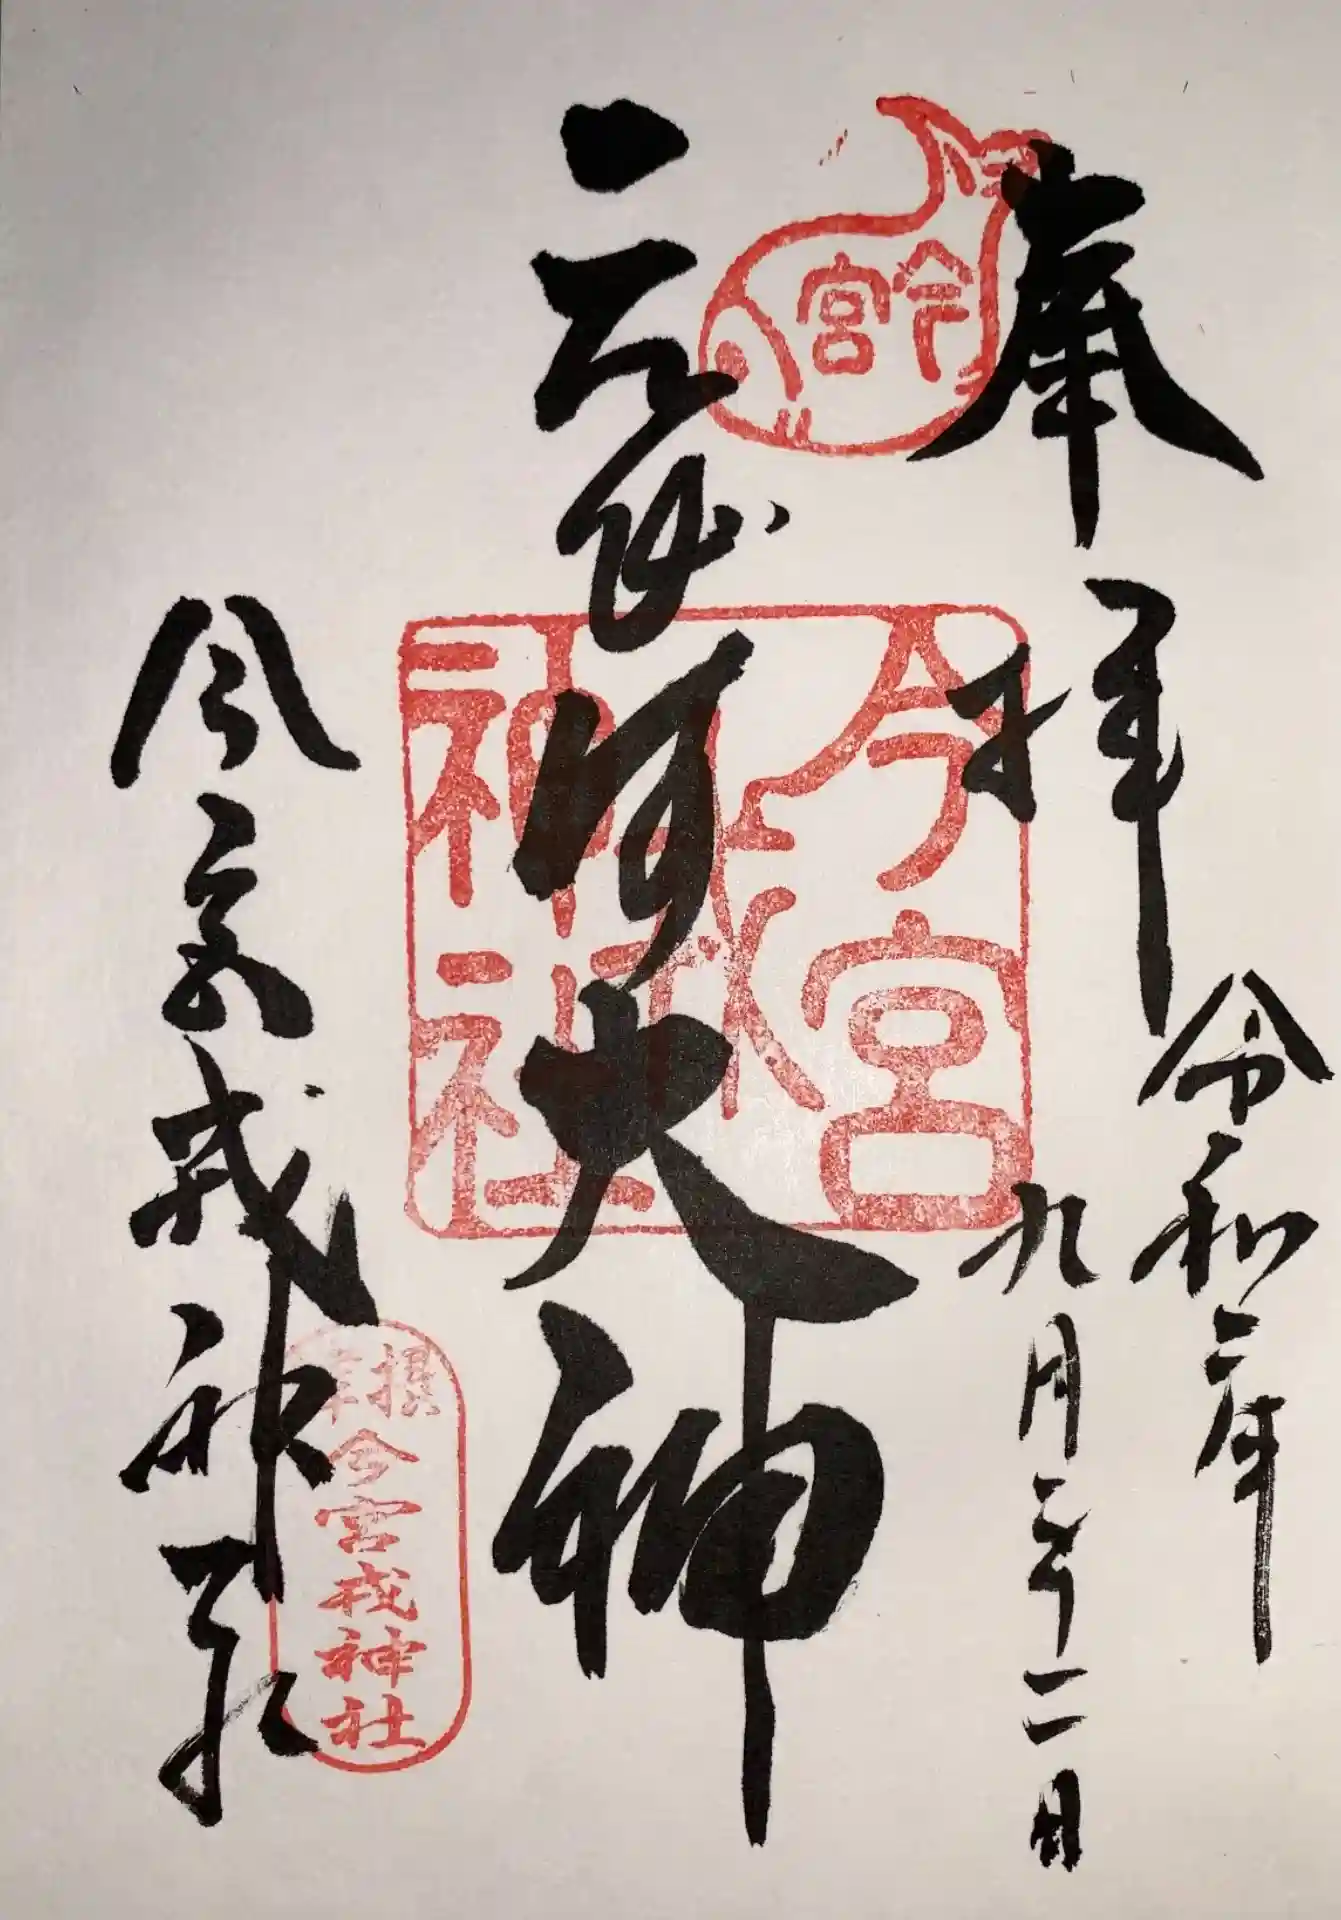 奉拝
令和二年
九月二十二日
今宮
ゑび須大神
今宮戎神社
今宮戎神社
摂
今宮戎神社